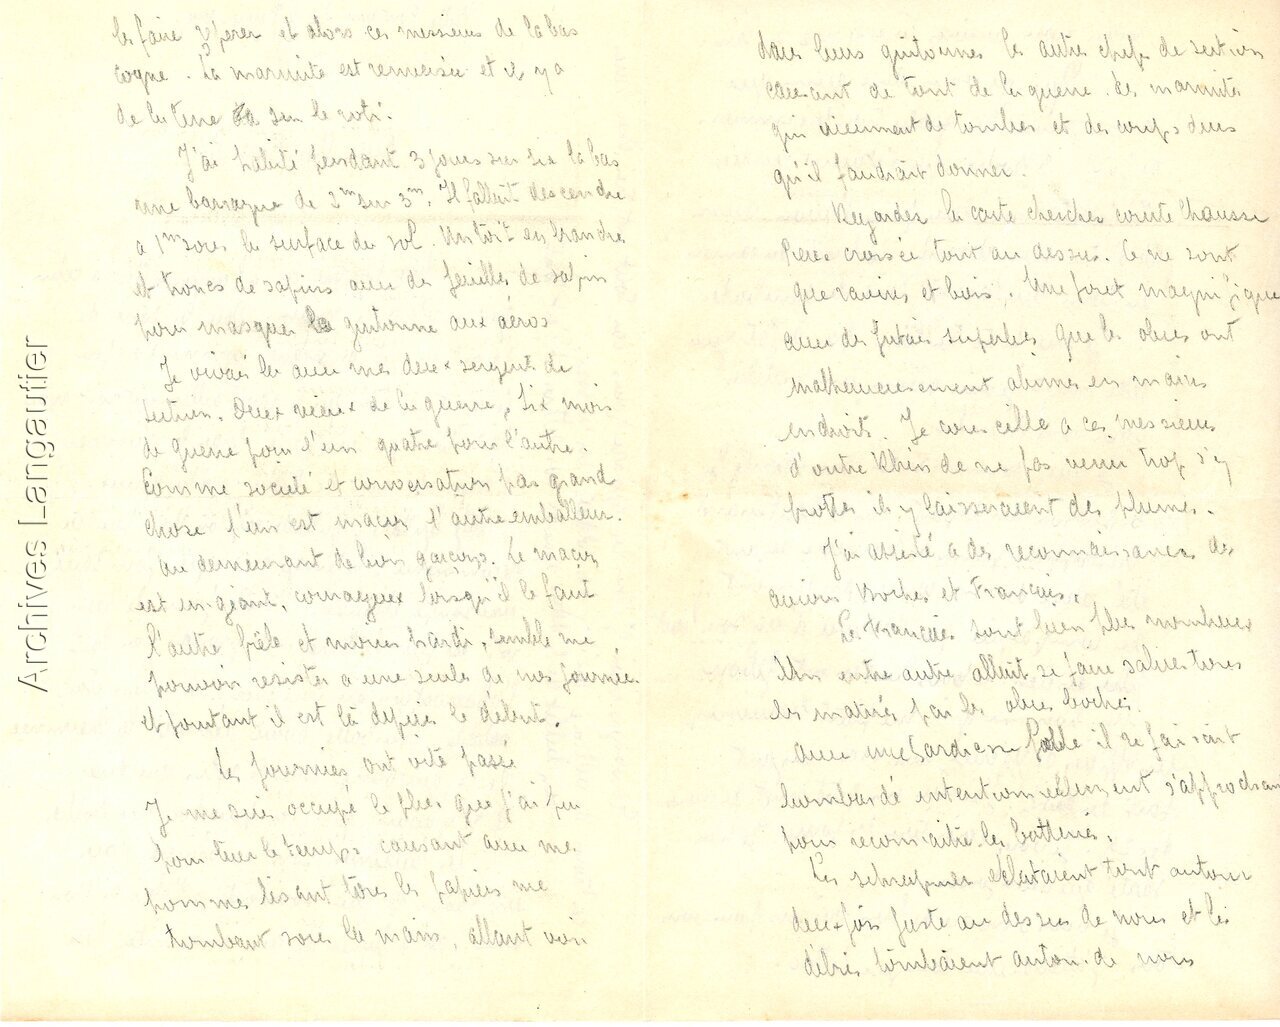 les faire et alors ces messieurs de la bas
cogne. La marmite est remuisée et il y a
de la terre sur le roti.
J'ai habité pendant 3 jours sur six la bas
une barraque de 2m sur 3m. Il fallait descendre
a 1m sous la surface du sol. Un toit en branches
et troncs de sapins avec des feuilles de sapin
pour masquer la guitoune aux aéros
Je vivais la avec mes deux sergents de
section. Deux vieux de la guerre, six mois
de guerre pour l'un quatre pour l'autre.
Comme société et conversation pas grand
chose l'un est maçon l'autre emballeur.
au demeurant de bons garçons. Le maçon
est un géant, courageux lorsqu'il le faut
l'autre frêle et moins hardi, semble ne
pouvoir resister a une seule de nos journée
et pourtant il est là depuis le début.
Les journées ont vite passé
Je me suis occupé le plus que j'ai pu
pour tuer le temps causant avec mes
hommes lisant tous les papiers me
tombant sous la main, allant voir
dans leurs guitounes les autres chefs de section
causant de tout de la guerre. des marmites
qui viennent de tomber et des coups durs
qu'il faudrait donner.
Regardez la carte cherchez courte chausse
Pierre croisée tout au dessus. Ce ne sont
que ravins et bois. Une foret magnifique
avec des futaies superbes que les obus ont
malheureusement abimés en maints
endroits. Je conseille a ces messieurs
d'outre Rhin de ne pas venir trop s'y
frotter ils y laisseraient des plumes.
J'ai assisté a des reconnaissances des
avions Boches et Français.
Les Français sont bien plus nombreux
Un entre autre allait se faire saluer tous
les matins par les obus boches.
avec une hardiesse folle il se faisait
bombardé intentionnellement s'approchant
pour reconnaitre les batteries.
Les schrapnels éclataient tout autour
deux fois juste au dessus de nous et les
débris tombaient autour de nous
Archives Langautier